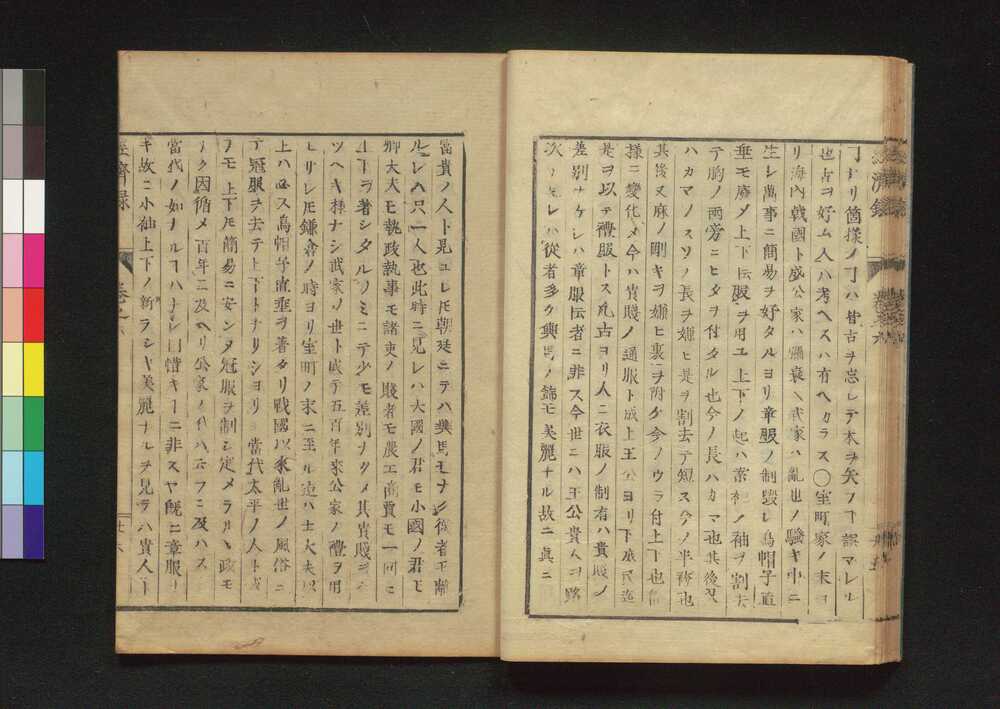 ヿナリ箇樣ノヿハ昔古ヲ忘レテ末ヲ矢フヿ誤マレル
也古ヲ好ム人ハ考ヘスハ有ヘカラス〇室町家ノ末ヨ
リ海內戰國ト成公家ハ彌衰ヘ武家ハ亂世ノ騷キ中ニ
生レ萬事ニ簡易ヲ好タルヨリ章服ノ制毀レ烏帽子直
垂モ廢メ上下ト云服ヲ用ユ上下ノ起ハ素袍ノ袖ヲ割去
テ胸ノ兩旁ニヒダヲ付タル也今ノ長ハカマ也其後又
ハカマノスソノ長ヲ嫌ヒ是ヲ割去テ短ス今ノ半袴也
其後又麻ノ剛キヲ嫌ヒ裏ヲ附ク今ノウラ付上下也
樣ニ變化メ今ハ貴賤ノ通服ト成上王公ヨリ下庶民迄
是ヲ以テ禮服トス凡古ヨリ人ニ衣服ノ制有ハ貴賤ノ
差別ナケレハ章服ト云者ニ非ス今世ニハ王公貴人ヲ路
次ノ レハ從者多ク輿馬ノ錦モ美麗ナル故ニ眞ニ
富貴ノ人ト見ユレ𪜈朝廷ニテハ輿馬モナシ從者モ離
ルレハ只一人也此時ニ見レハ大國ノ君モ小國ノ君モ
卿大夫モ執政執事モ諸吏ノ賤者モ農工商賈モ一同ニ
上下ヲ著シタルノミニテ少モ差別ナクメ其貴賤
ツヘキ樣ナシ武家ノ世ト成テ五百年來公家ノ禮ヲ用
ヒサレ𪜈鎌倉ノ時ヨリ室町ノ末ニ至ル迄ハ士大夫以
上ハ必ス烏帽子直垂ヲ著タリ戰國以來亂世ノ風俗ニ
テ冠服ヲ去テ上下トナリショリ 當代太平ノ人ト成
テモ上下𪜈簡易ニ安ンメ冠服ヲ制シ定メラルヽ政モ
ナク因循メ百年ニ及ヘリ公家ノ代ハ云フニ及ハス
當代ノ如ナルヿハナシ口惜キヿニ非スヤ旣ニ章服ナ
キ故ニ小袖上下ノ新ラシキ美麗ナルヲ見テハ貴人ト
經濟錄
卷之八
廿六